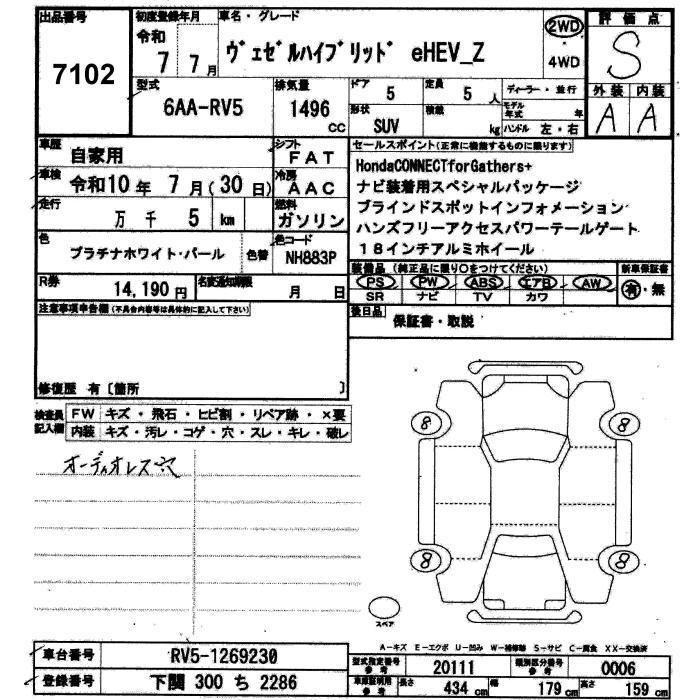 出品番号
7102
初度登録年月
令和
7 7月
車名・グレード
ヴェゼルハイブリッド eHEV_Z
2WD
4WD
評価点
S
外装 内装
A A
型式
6AA-RV5
排気量
1496
cc
ドア
5
定員
5 人
形状
SUV
積載
kg
ディーラー・並行
モデル年式 年
ハンドル 左・右
車歴
自家用
シフト
FAT
車検
令和10年 7月(30日)
冷房
AAC
走行
万 千 5 km
燃料
ガソリン
色
プラチナホワイト・パール
色替
色コード
NH883P
セールスポイント(正常に機能するものに限ります)
HondaCONNECTforGathers+
ナビ装着用スペシャルパッケージ
ブラインドスポットインフォメーション
ハンズフリーアクセスパワーテールゲート
18インチアルミホイール
R券
14,190円
名変通知期限
月 日
装備品 (純正品に限り○をつけてください)
PS PW ABS エアB AW
SR ナビ TV カワ
新車保証書
有・無
注意事項申告欄(不具合内容等は具体的に記入して下さい)
後日品
保証書・取説
修復歴 有〔箇所 〕
検査員記入欄
FW キズ・飛石・ヒビ割・リペア跡・×要
内装 キズ・汚レ・コゲ・穴・スレ・キレ・破レ
オーディオレス穴
8 8
8 8
スペア
A-キズ E-エクボ U-凹み W-補修跡 S-サビ C-腐食 XX-交換済
車台番号
RV5-1269230
型式指定番号
参考
20111
類別区分番号
参考
0006
登録番号
下関 300 ち 2286
車庫証明用
参考
長さ
434 cm
幅
179 cm
高さ
159 cm